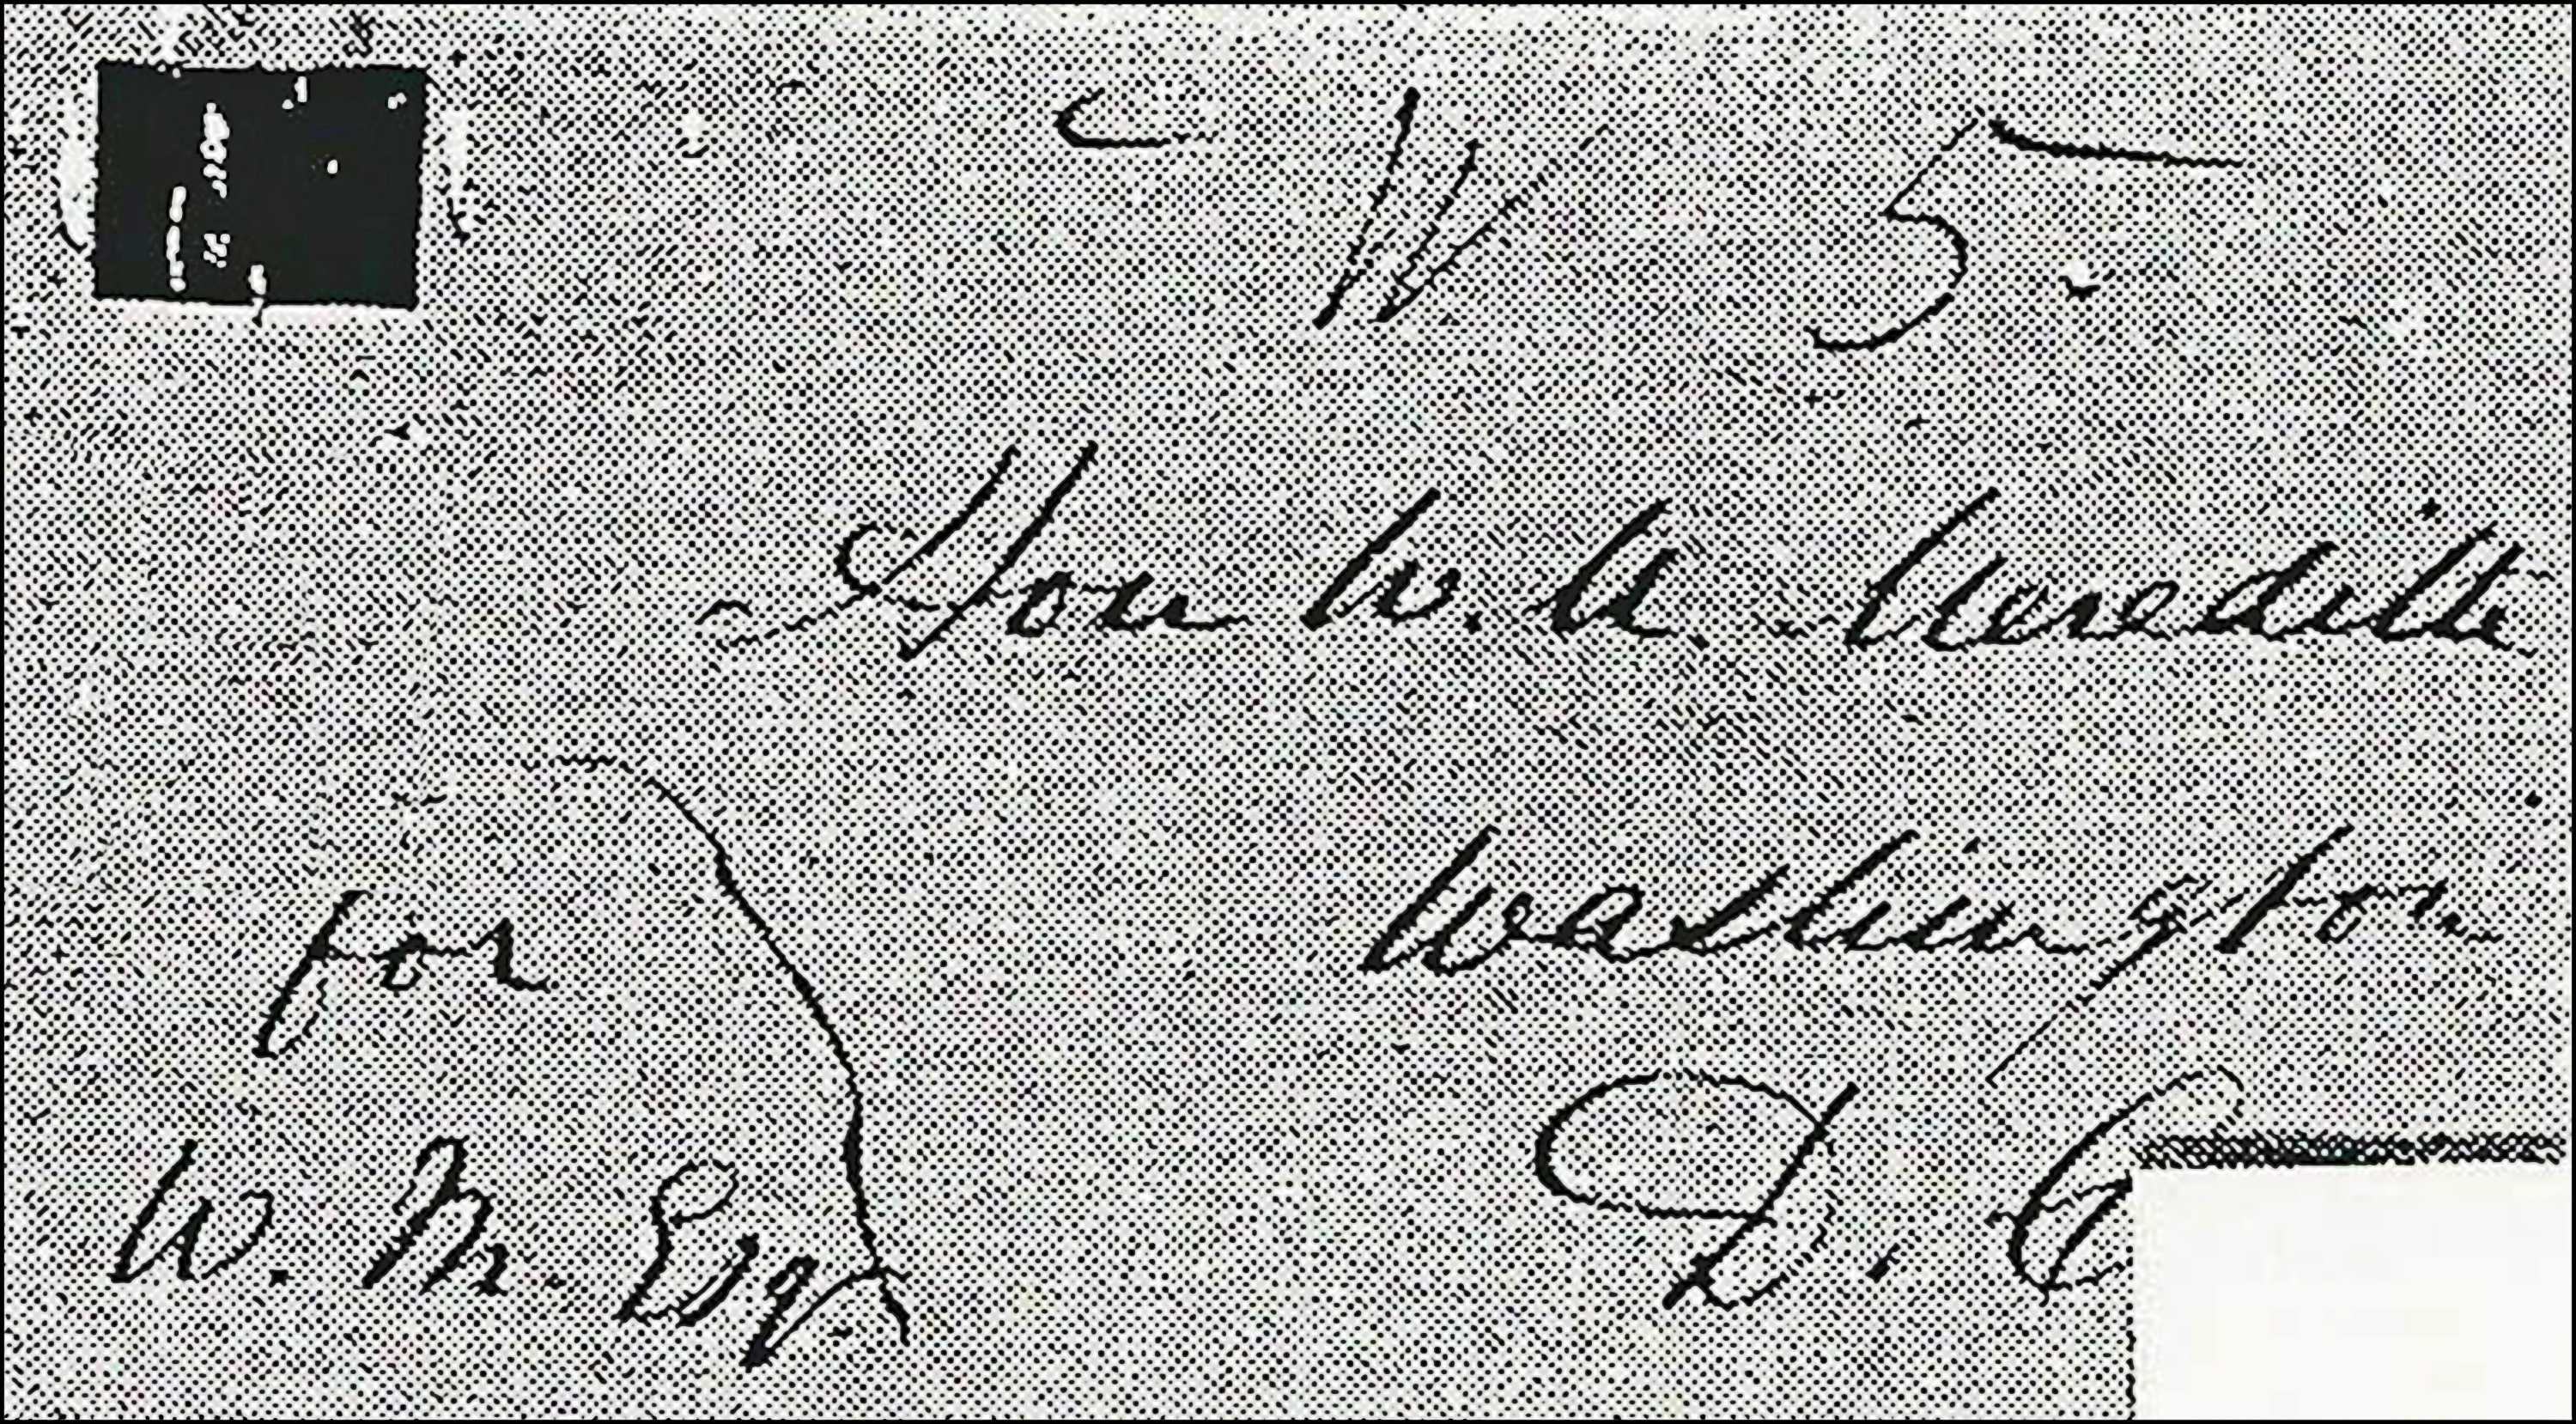 5.
Hon W. M. Meredith
Washington
D. C
for
W. M. Esq